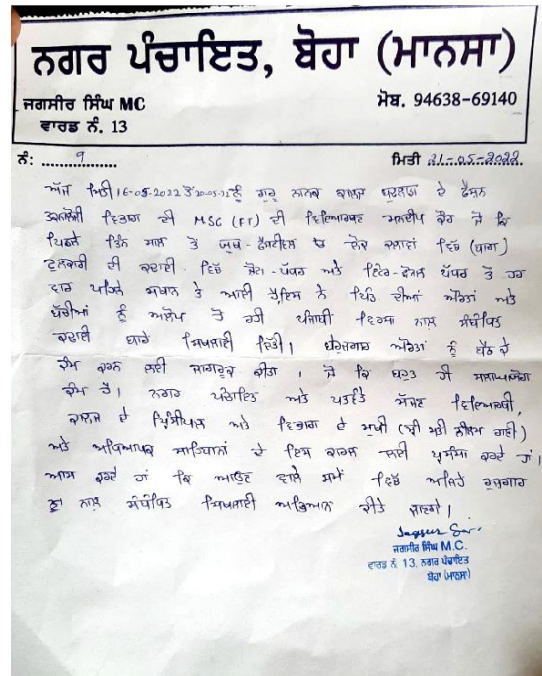 ਨਗਰ ਪੰਚਾਇਤ, ਬੋਹਾ (ਮਾਨਸਾ)
ਜਗਸੀਰ ਸਿੰਘ MC
ਮੋਬ. 94638-69140
ਵਾਰਡ ਨੰ. 13
ਨੰ: 9
ਮਿਤੀ 21-05-2022
ਅੱਜ ਮਿਤੀ 16-05-2022 ਤੋਂ 20-05-22 ਨੂੰ ਗੁਰੂ ਨਾਨਕ ਕਾਲਜ ਬੁਢਲਾਡਾ ਦੇ ਫੈਸ਼ਨ
ਟਕਨਾਲੋਜੀ ਵਿਭਾਗ ਦੀ MSC (FT) ਦੀ ਵਿਦਿਆਰਥਣ ਮਨਦੀਪ ਕੌਰ ਜੋ ਕਿ
ਪਿਛਲੇ ਤਿੰਨ ਸਾਲ ਤੋਂ ਯੂਥ-ਫੈਸਟੀਵਲ ਚ ਲੋਕ ਕਲਾਵਾਂ ਵਿੱਚ (ਬਾਗ)
ਫੁਲਕਾਰੀ ਦੀ ਕਢਾਈ ਵਿੱਚ ਜੋਨ-ਪੱਧਰ ਅਤੇ ਇੰਟਰ-ਜੋਨਲ ਪੱਧਰ ਤੇ ਹਰ
ਵਾਰ ਪਹਿਲੇ ਸਥਾਨ ਤੇ ਆਈ ਹੈ, ਇਸ ਨੇ ਪਿੰਡ ਦੀਆਂ ਔਰਤਾਂ ਅਤੇ
ਬੱਚੀਆਂ ਨੂੰ ਅਲੋਪ ਹੋ ਰਹੀ ਪੰਜਾਬੀ ਵਿਰਸਾ ਨਾਲ ਸੰਬੰਧਿਤ
ਕਢਾਈ ਬਾਰੇ ਸਿਖਲਾਈ ਦਿੱਤੀ। ਬੇਰੁਜ਼ਗਾਰ ਔਰਤਾਂ ਨੂੰ ਬੈਠ ਕੇ
ਕੰਮ ਕਰਨ ਲਈ ਜਾਗਰੂਕ ਕੀਤਾ। ਜੋ ਕਿ ਬਹੁਤ ਹੀ ਸਲਾਘਾਯੋਗ
ਕੰਮ ਹੈ। ਨਗਰ ਪੰਚਾਇਤ ਅਤੇ ਪਤਵੰਤੇ ਸੱਜਣ ਵਿਦਿਆਰਥੀ,
ਕਾਲਜ ਦੇ ਪ੍ਰਿੰਸੀਪਲ ਅਤੇ ਵਿਭਾਗ ਦੇ ਮੁਖੀ (ਸ੍ਰੀ ਮਤੀ ਨੀਲਮ ਰਾਣੀ)
ਅਤੇ ਅਧਿਆਪਕ ਸਾਹਿਬਾਨਾਂ ਦੇ ਇਸ ਕਾਰਜ ਲਈ ਪ੍ਰਸੰਸਾ ਕਰਦੇ ਹਾਂ।
ਆਸ ਕਰਦੇ ਹਾਂ ਕਿ ਆਉਣ ਵਾਲੇ ਸਮੇਂ ਵਿੱਚ ਅਜਿਹੇ ਰੁਜ਼ਗਾਰ
ਨਾਲ ਸੰਬੰਧਿਤ ਸਿਖਲਾਈ ਅਭਿਆਨ ਕੀਤੇ ਜਾਣਗੇ।
ਜਗਸੀਰ ਸਿੰਘ M.C.
ਵਾਰਡ ਨੰ. 13, ਨਗਰ ਪੰਚਾਇਤ
ਬੋਹਾ (ਮਾਨਸਾ)